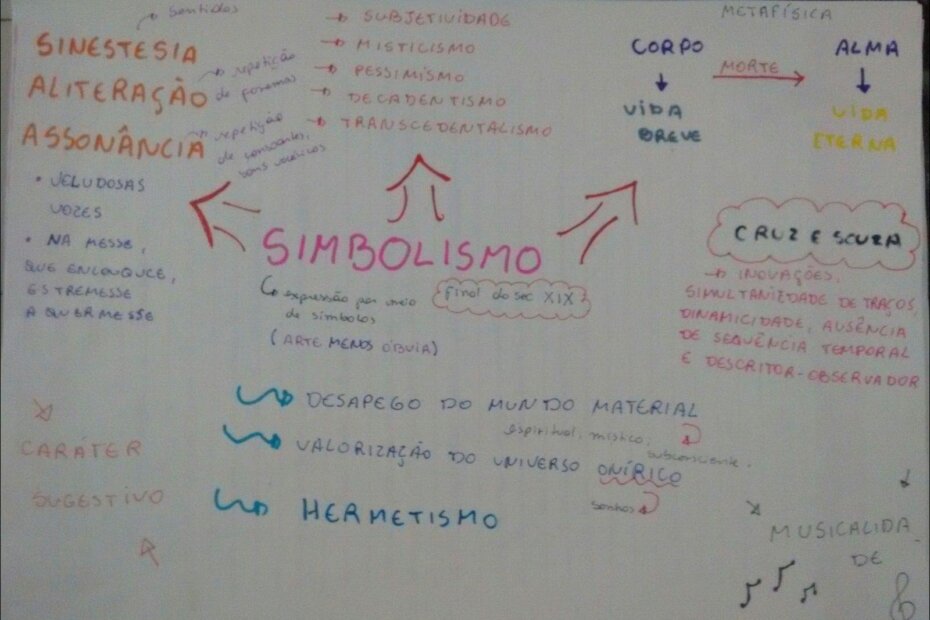 sentidos
SINESTESIA
ALITERAÇÃO
repetição
de fonemas
ASSONÂNCIA
repetição
de consoantes,
sons vocálicos
• VELUDOSAS
VOZES
• NA MESSE,
QUE ENLOUQUCE,
ESTREMESSE
A QUERMESSE
SUBJETIVIDADE
MISTICISMO
PESSIMISMO
DECADENTISMO
TRANSCEDENTALISMO
METAFÍSICA
CORPO
MORTE
ALMA
VIDA
BREVE
VIDA
ETERNA
SIMBOLISMO
final do sec XIX
expressão por meio
de símbolos
(ARTE MENOS ÓBVIA)
CRUZ E SOUZA
INOVAÇÕES,
SIMULTANIEDADE DE TRAÇOS,
DINAMICIDADE, AUSÊNCIA
DE SEQUÊNCIA TEMPORAL
E DESCRITOR-OBSERVADOR
DESAPEGO DO MUNDO MATERIAL
espiritual, místico,
subconsciente.
VALORIZAÇÃO DO UNIVERSO ONÍRICO
sonhos
HERMETISMO
CARÁTER
SUGESTIVO
MUSICALIDA-
DE